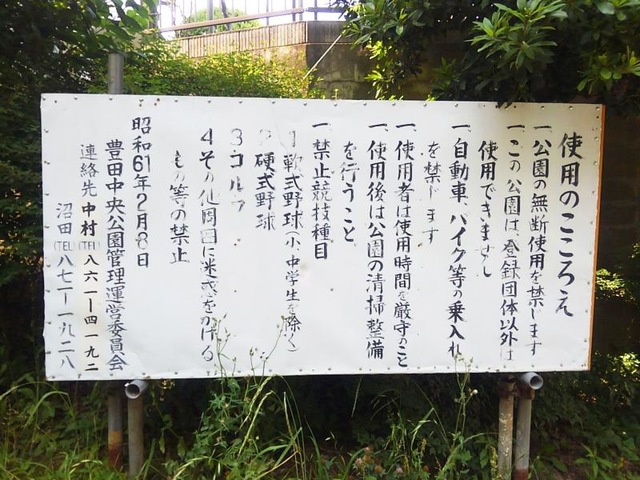 使用のこころえ
一、公園の無断使用を禁じます
一、この公園は、登録団体以外は
使用できません
一、自動車、バイク等の乗入れ
を禁じます
一、使用者は使用時間を厳守のこと
一、使用後は公園の清掃整備
を行うこと
一、禁止競技種目
1 軟式野球(小、中学生を除く)
2 硬式野球
3 ゴルフ
4 その他周囲に迷惑をかける
もの等の禁止
昭和61年2月8日
豊田中央公園管理運営委員会
連絡先 中村(TEL)八六一ー四一九二
沼田(TEL)八七一ー一九二八